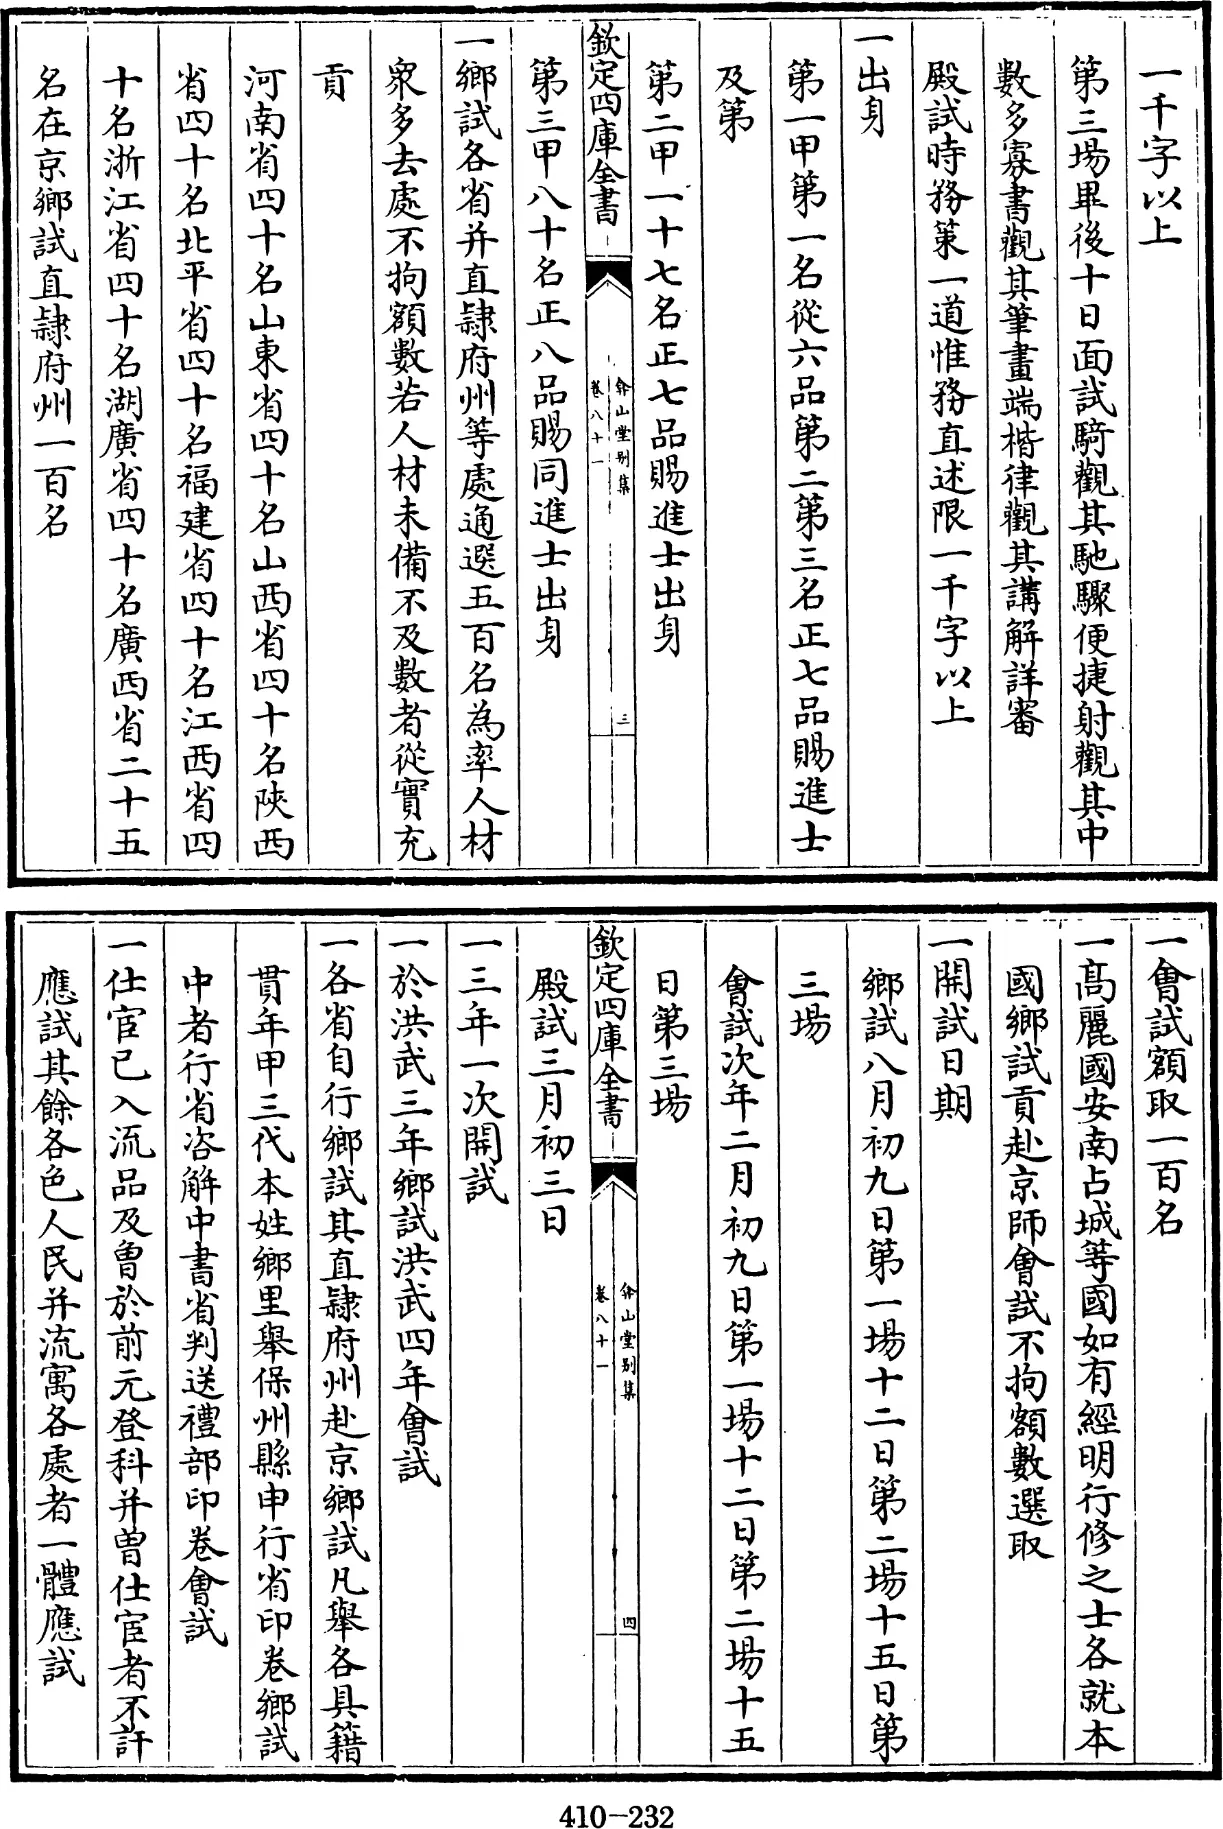 一千字以上
第三場畢後十日面試騎觀其馳驟便捷射觀其中
數多寡書觀其筆畫端楷律觀其講解詳審
殿試時務策一道惟務直述限一千字以上
一出身
第一甲第一名從六品第二第三名正七品賜進士
及第
第二甲一十七名正七品賜進士出身
欽定四庫全書
弇山堂别集
卷八十一
三
第三甲八十名正八品賜同進士出身
一鄉試各省并直隸府州等處通選五百名為率人材
衆多去處不拘額數若人材未備不及數者從實充
貢
河南省四十名山東省四十名山西省四十名陜西
省四十名北平省四十名福建省四十名江西省四
十名浙江省四十名湖廣省四十名廣西省二十五
名在京鄉試直隸府州一百名
一會試額取一百名
一髙麗國安南占城等國如有經明行修之士各就本
國鄉試貢赴京師會試不拘額數選取
一開試日期
鄉試八月初九日第一場十二日第二場十五日第
三場
會試次年二月初九日第一場十二日第二場十五
日第三場
欽定四庫全書
弇山堂别集
卷八十一
四
殿試三月初三日
一三年一次開試
一於洪武三年鄉試洪武四年會試
一各省自行鄉試其直隸府州赴京鄉試凡舉各具籍
貫年甲三代本姓鄉里舉保州縣申行省印卷鄉試
中者行省咨解中書省判送禮部印卷會試
一仕宦已入流品及曽於前元登科并曽仕宦者不許
應試其餘各色人民并流寓各處者一體應試
410-232